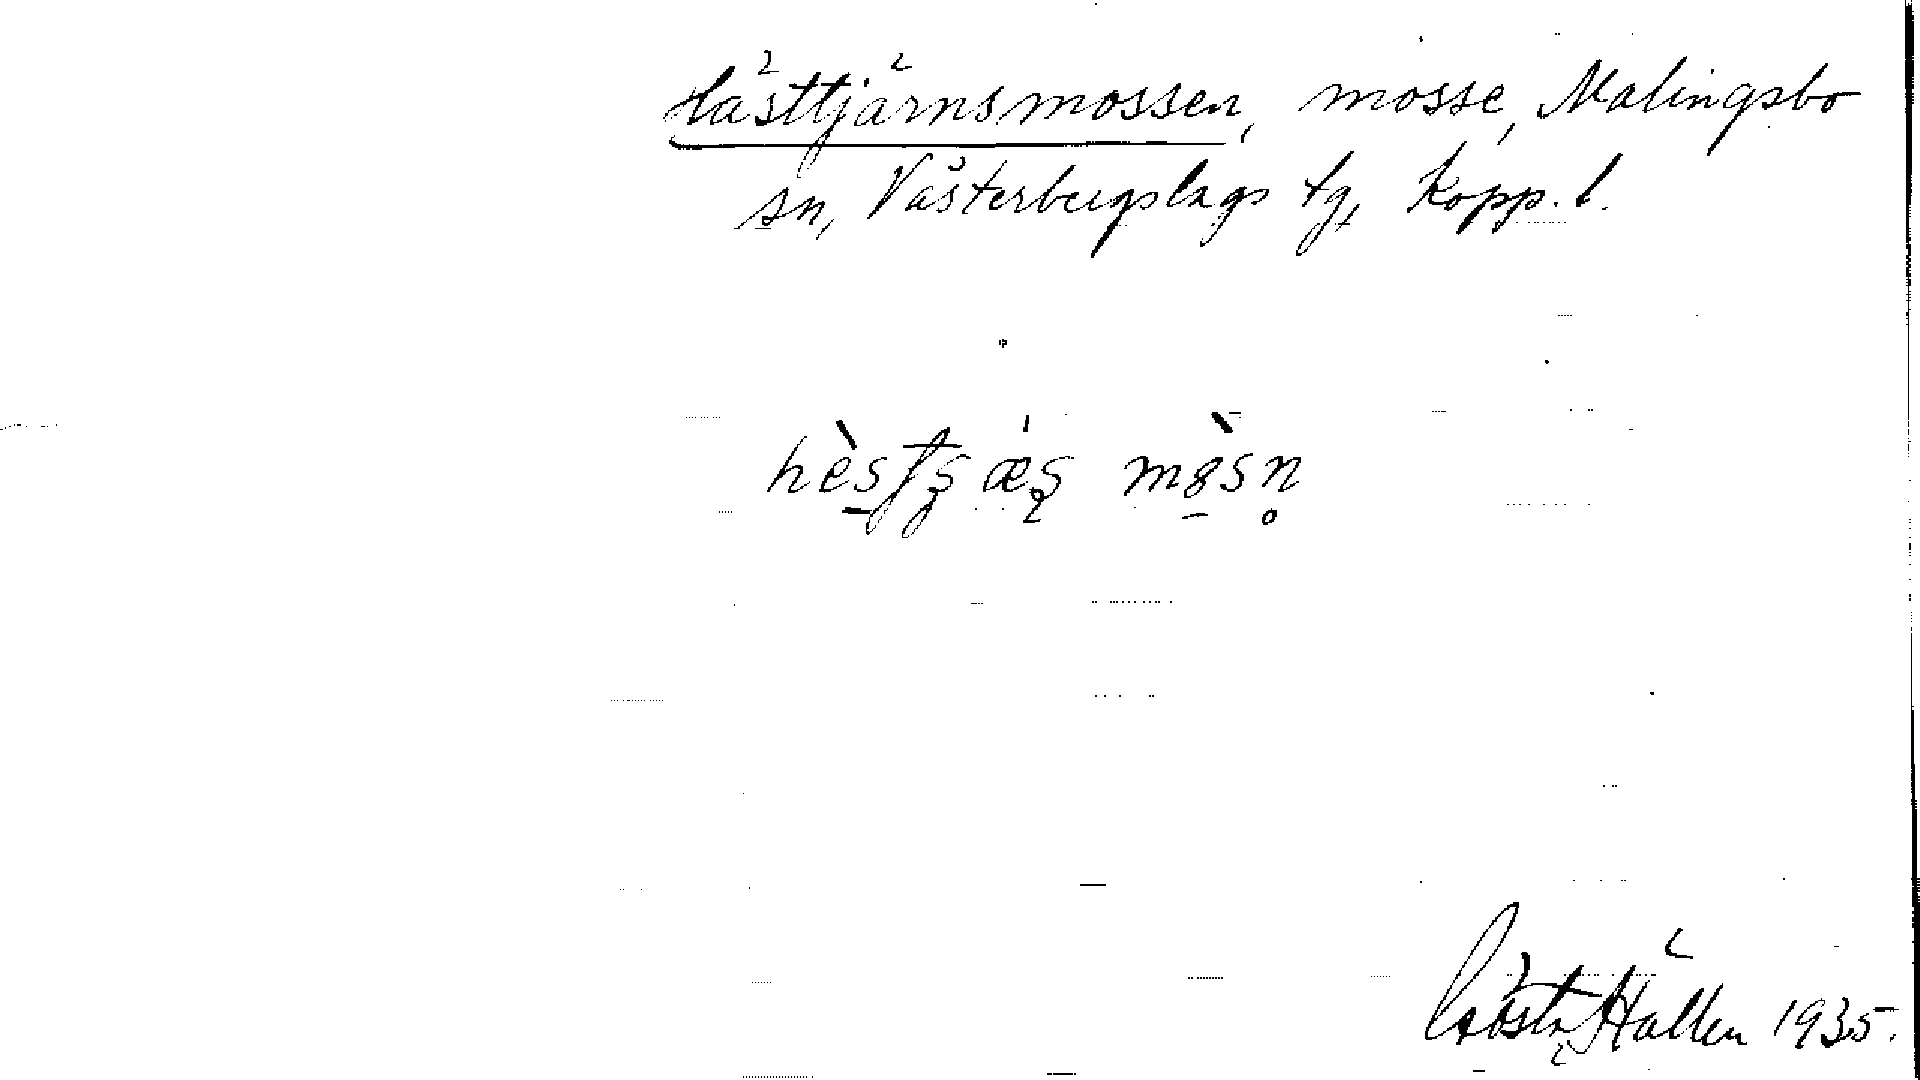 Hästtjärnsmossen, mosse, Malingsbo
sn, Västerbergslags tg, Kopp. l.
mosn
Gösta Hallen 1935.